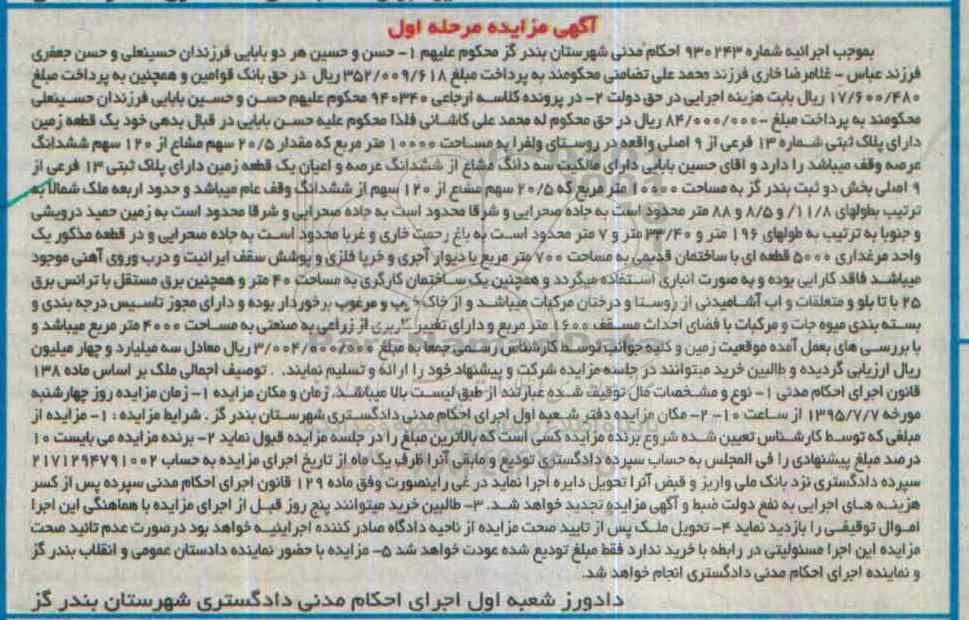 آگهی مزایده مرحله اول
بموجب اجرائیه شماره ۹۳۰۲۴۳ احکام مدنی شهرستان بندر گز محکوم علیهم ۱- حسن و حسین هر دو بابایی فرزندان حسینعلی و حسن جعفری
فرزند عباس - غلامرضا خاری فرزند محمد علی تضامنی محکومند به پرداخت مبلغ ۳۵۲/۰۰۹/۶۱۸ ریال در حق بانک قوامین و همچنین به پرداخت مبلغ
۱۷/۶۰۰/۴۸۰ ریال بابت هزینه اجرایی در حق دولت ۲- در پرونده کلاسه ارجاعی ۹۴۰۳۴۰ محکوم علیهم حسن و حسین بابایی فرزندان حسینعلی
محکومند به پرداخت مبلغ -۸۴/۰۰۰/۰۰۰ ریال در حق محکوم له محمد علی کاشانی فلذا محکوم علیه حسن بابایی در قبال بدهی خود یک قطعه زمین
دارای پلاک ثبتی شماره ۱۳ فرعی از ۹ اصلی واقعه در روستای ولفرا به مساحت ۱۰۰۰۰ متر مربع که مقدار ۲۰/۵ سهم مشاع از ۱۲۰ سهم ششدانگ
عرصه وقف میباشد را دارد و اقای حسین بابایی دارای مالکیت سه دانگ مشاع از ششدانگ عرصه و اعیان یک قطعه زمین دارای پلاک ثبتی ۱۳ فرعی از
۹ اصلی بخش دو ثبت بندر گز به مساحت ۱۰۰۰۰ متر مربع که ۲۰/۵ سهم مشاع از ۱۲۰ سهم از ششدانگ وقف عام میباشد و حدود اربعه ملک شمالا به
ترتیب بطولهای ۱۱/۸/ و ۸/۵ و ۸۸ متر محدود است به جاده صحرایی و شرقا محدود است به جاده صحرایی و شرقا محدود است به زمین حمید درویشی
و جنوبا به ترتیب به طولهای ۱۹۶ متر و ۳۳/۴۰ متر و ۷ متر محدود است به باغ رحمت خاری و غربا محدود است به جاده صحرایی و در قطعه مذکور یک
واحد مرغداری ۵۰۰۰ قطعه ای با ساختمان قدیمی به مساحت ۷۰۰ متر مربع با دیوار آجری و خرپا فلزی و پوشش سقف ایرانیت و درب وروی آهنی موجود
میباشد فاقد کارایی بوده و به صورت انباری استفاده میگردد و همچنین یک ساختمان کارگری به مساحت ۴۰ متر و همچنین برق مستقل با ترانس برق
۲۵ با تا بلو و متعلقات و اب آشامیدنی از روستا و درختان مرکبات میباشد و از خاک خوب و مرغوب برخوردار بوده و دارای مجوز تاسیس درجه بندی و
بسته بندی میوه جات و مرکبات با فضای احداث مسقف ۱۶۰۰ متر مربع و دارای تغییر کاربری از زراعی به صنعتی به مساحت ۴۰۰۰ متر مربع میباشد و
با بررسی های بعمل آمده موقعیت زمین و کلیه جوانب توسط کارشناس رسمی جمعا به مبلغ ۳/۰۰۴/۰۰۰/۰۰۰ ریال معادل سه میلیارد و چهار میلیون
ریال ارزیابی گردیده و طالبین خرید میتوانند در جلسه مزایده شرکت و پیشنهاد خود را ارائه و تسلیم نمایند. . توصیف اجمالی ملک بر اساس ماده ۱۳۸
قانون اجرای احکام مدنی ۱- نوع و مشخصات مال توقیف شده عبارتند از طبق لیست بالا میباشد. زمان و مکان مزایده ۱- زمان مزایده روز چهارشنبه
مورخه ۱۳۹۵/۷/۷ از ساعت ۱۰- ۲- مکان مزایده دفتر شعبه اول اجرای احکام مدنی دادگستری شهرستان بندر گز . شرایط مزایده : ۱- مزایده از
مبلغی که توسط کارشناس تعیین شده شروع برنده مزایده کسی است که بالاترین مبلغ را در جلسه مزایده قبول نماید ۲- برنده مزایده می بایست ۱۰
درصد مبلغ پیشنهادی را فی المجلس به حساب سپرده دادگستری تودیع و مابقی آنرا ظرف یک ماه از تاریخ اجرای مزایده به حساب ۲۱۷۱۲۹۴۷۹۱۰۰۲
سپرده دادگستری نزد بانک ملی واریز و قبض آنرا تحویل دایره اجرا نماید در غی راینصورت وفق ماده ۱۲۹ قانون اجرای احکام مدنی سپرده پس از کسر
هزینه های اجرایی به نفع دولت ضبط و آگهی مزایده تجدید خواهد شد. ۳- طالبین خرید میتوانند پنج روز قبل از اجرای مزایده با هماهنگی این اجرا
اموال توقیفی را بازدید نماید ۴- تحویل ملک پس از تایید صحت مزایده از ناحیه دادگاه صادر کننده اجراییه خواهد بود در صورت عدم تائید صحت
مزایده این اجرا مسئولیتی در رابطه با خرید ندارد فقط مبلغ تودیع شده عودت خواهد شد ۵- مزایده با حضور نماینده دادستان عمومی و انقلاب بندر گز
و نماینده اجرای احکام مدنی دادگستری انجام خواهد شد.
دادورز شعبه اول اجرای احکام مدنی دادگستری شهرستان بندر گز